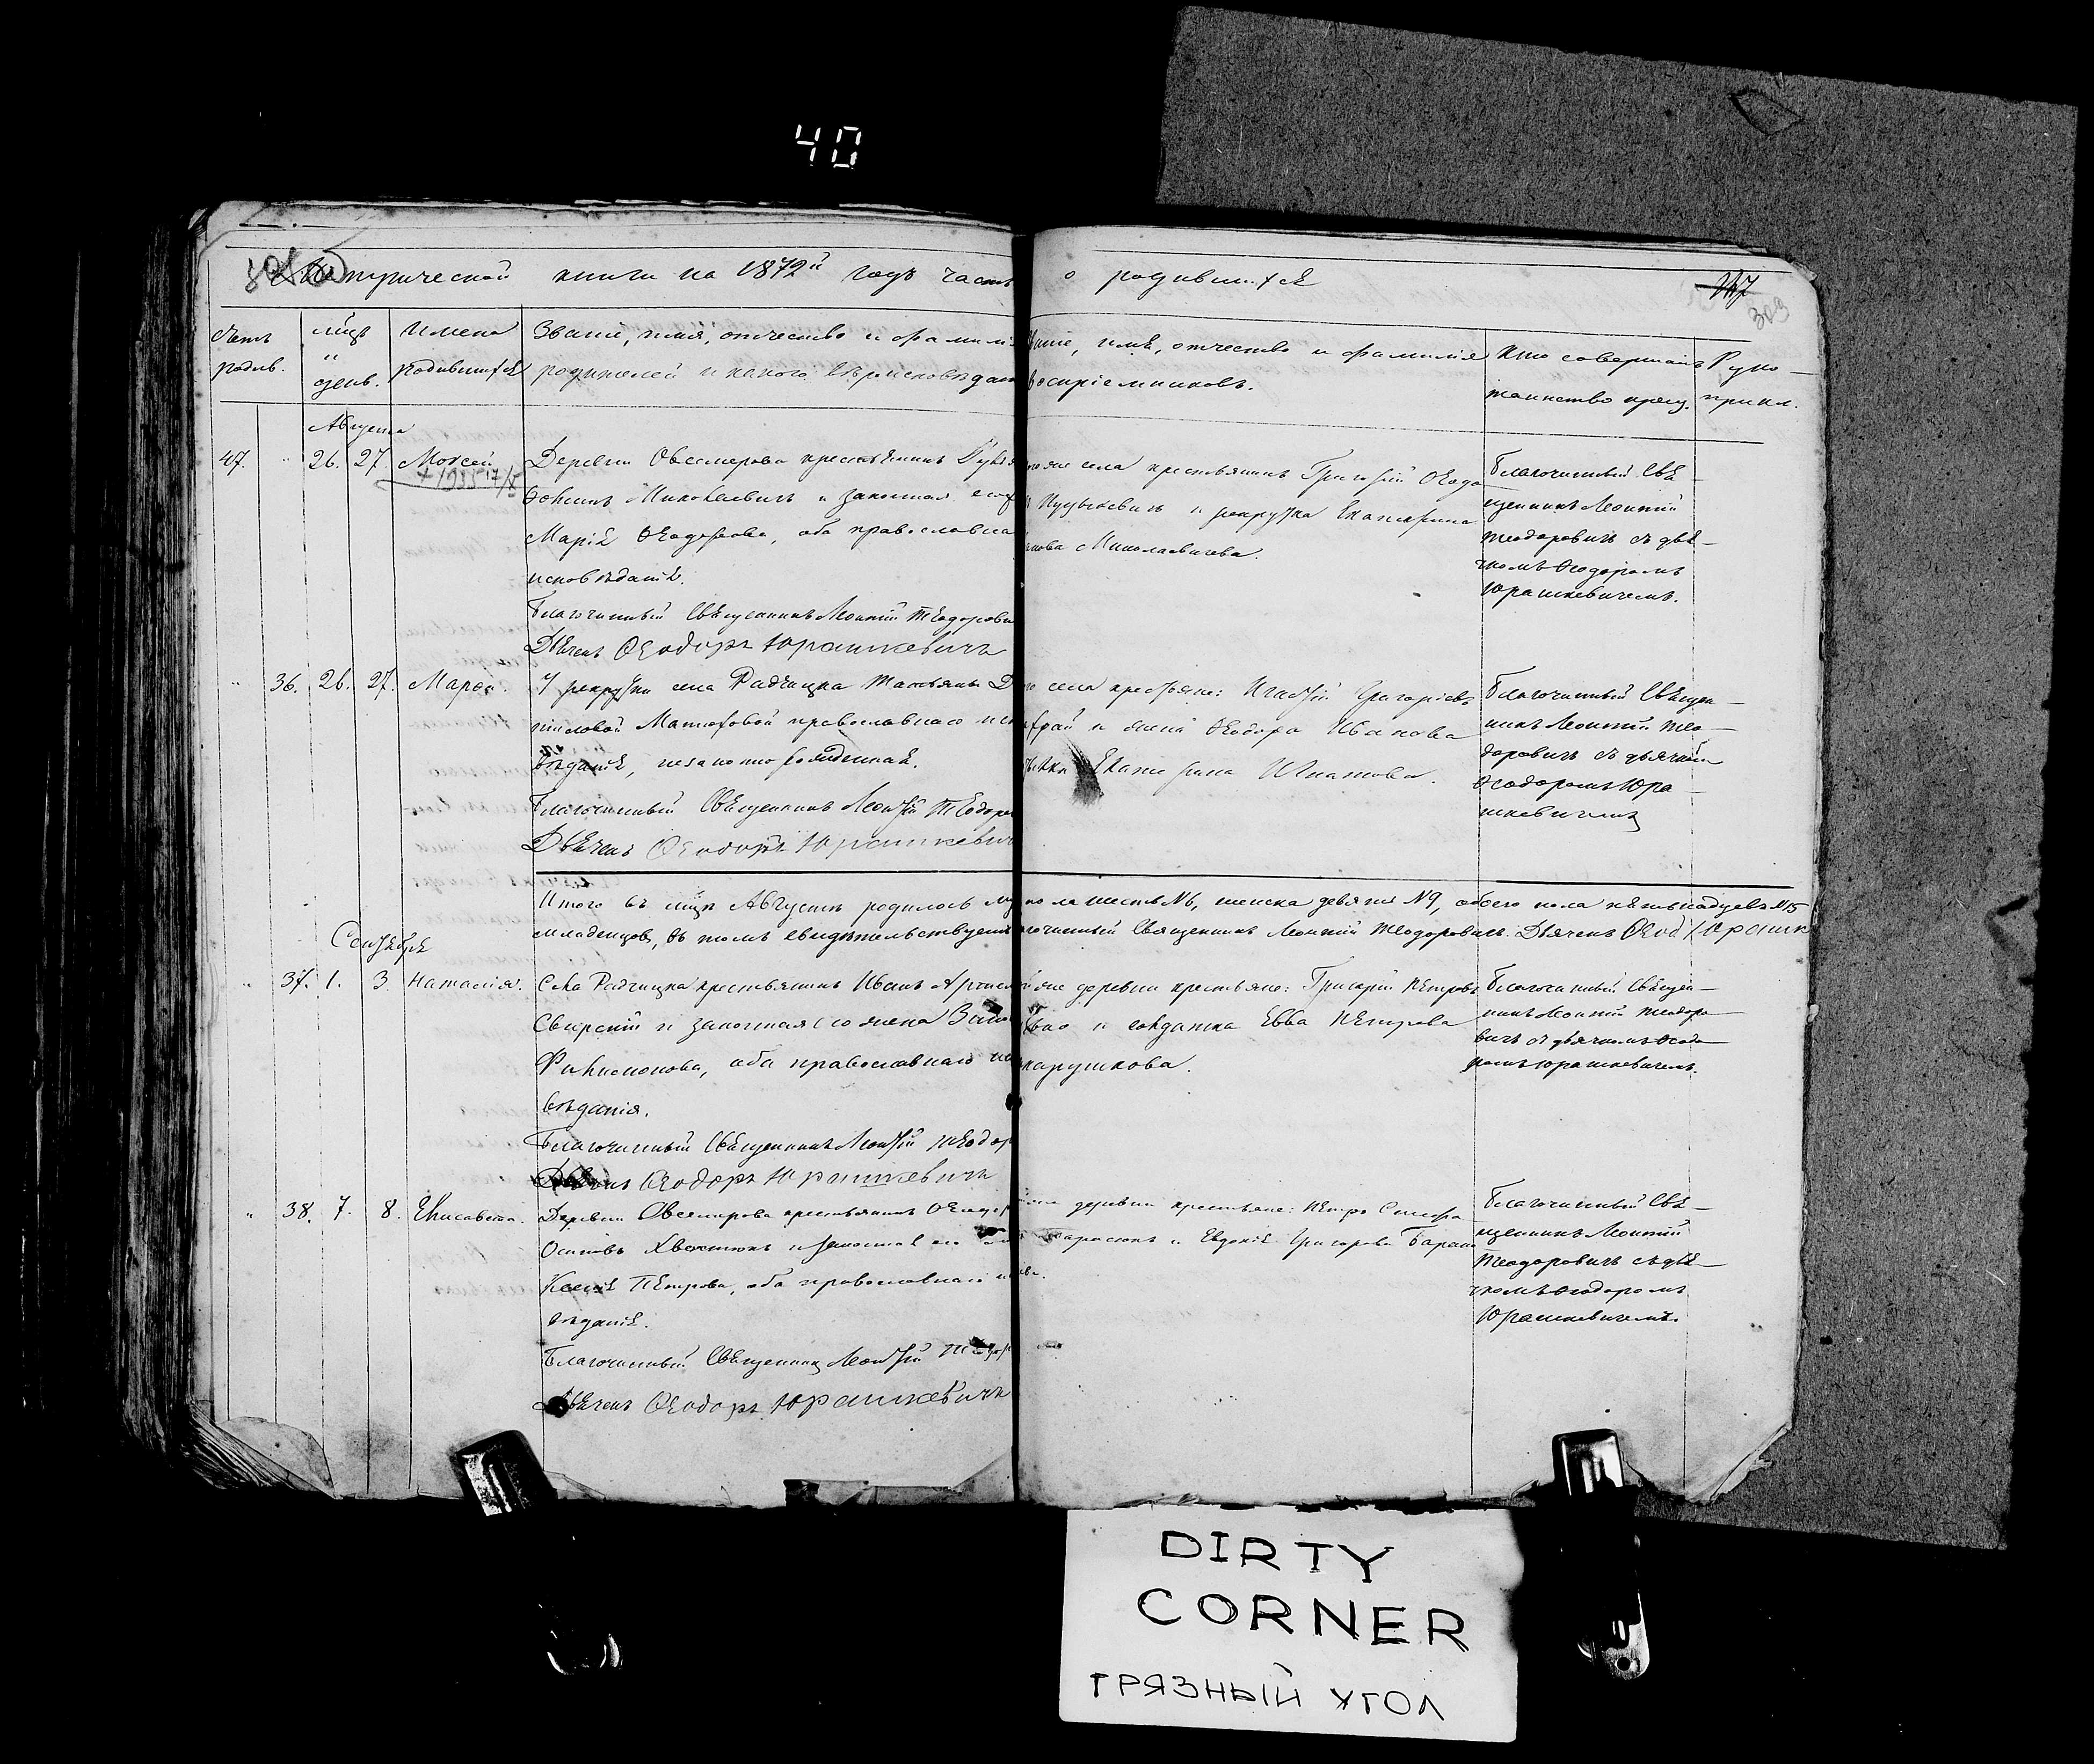 40
Метрической книги на 1872й годъ часть
о родившихся
303
Счетъ родив.
мцъ и день.
Имена родившихся
Званіе, имя, отчество и фамилія
родителей и какого вѣроисповѣдан
имя, отчество и фамилія
воспріемниковъ.
Кто совершалъ
таинство крещ.
Руко-
прикл.
Августа
47. " 26. 27 Моисей
Деревни Овсемерова крестьянинъ
Миколаевичъ и законная его
Марія Ѳеодорова, оба православна
исповѣданія.
Благочинный Священникъ Леонтій Теодорови
Дьячекъ Ѳеодоръ Юрашкевичъ
села крестьянинъ Григорій Ѳеодо
и рекрутка Екатерина
Миколаевичева.
Благочинный Свя-
щенникъ Леонтій
Теодоровичъ съ дья-
чкомъ Ѳеодоромъ
Юрашкевичемъ.
" 36. 26. 27. Марѳа.
У рекрутки села Радчицка Татьяны
православнаго исп
вѣданія, незаконнорожденная.
Благочинный Священникъ Леонтій Теодоро
Дьячекъ Ѳеодоръ Юрашкевич
села крестьяне: Игнатій Григоріевъ
и жена Ѳеодора Иванова
Екатерина Игнатова.
Благочинный Священ-
никъ Леонтій Тео-
доровичъ съ дьячкомъ
Ѳеодоромъ Юра-
шкевичемъ
Итого въ мцѣ Августѣ родилось му
пола шесть №6, женска девять №9, обоего пола пятьнадцать №15
младенцовъ, въ томъ свидѣтельствуемъ
гочинный Священникъ Леонтій Теодоровичъ. Дьячекъ Ѳеод. Юрашк
Сентября
" 37. 1. 3. Наталія.
Села Радчицка крестьянинъ Иванъ
Свирскій и законная его жена
Филимонова, оба православнаго испо
вѣданія.
Благочинный Священникъ Леонтій Теодор
Дьячекъ Ѳеодоръ Юрашкевичъ
деревни крестьяне: Григорій Петровъ
и солдатка Евва Петрова
Благочинный Священ-
никъ Леонтій Теодоро-
вичъ съ дьячкомъ Ѳеодо-
ромъ Юрашкевичемъ.
" 38. 7. 8. Елисавета.
Деревни Овсемирова крестьянинъ Ѳеодор
Осиповъ Хвесюкъ и законная его
Ксенія Петрова, оба православнаго испо
вѣданія.
Благочинный Священникъ Леонтій Теодор
Дьячекъ Ѳеодоръ Юрашкевичъ
деревни крестьяне: Петръ
и Евдокія Григорова Барано
ва.
Благочинный Свя-
щенникъ Леонтій
Теодоровичъ съ дья-
чкомъ Ѳеодоромъ
Юрашкевичемъ.
DIRTY
CORNER
ГРЯЗНЫЙ УГОЛ